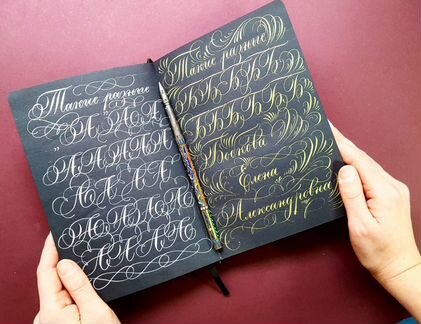 Такие разные
„А, А, А, А
А А А А А
А А А А
А А А А А
А А А А
Такие разные
Б Б Б Б Б
Б Б Б Б Б
Елена
Александровна